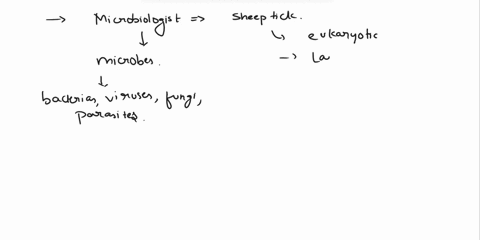 → Microbiologist => Sheep tick.
↳ eukaryotic
microbes.
→ La
bacterias, viruses, fungi,
parasites.